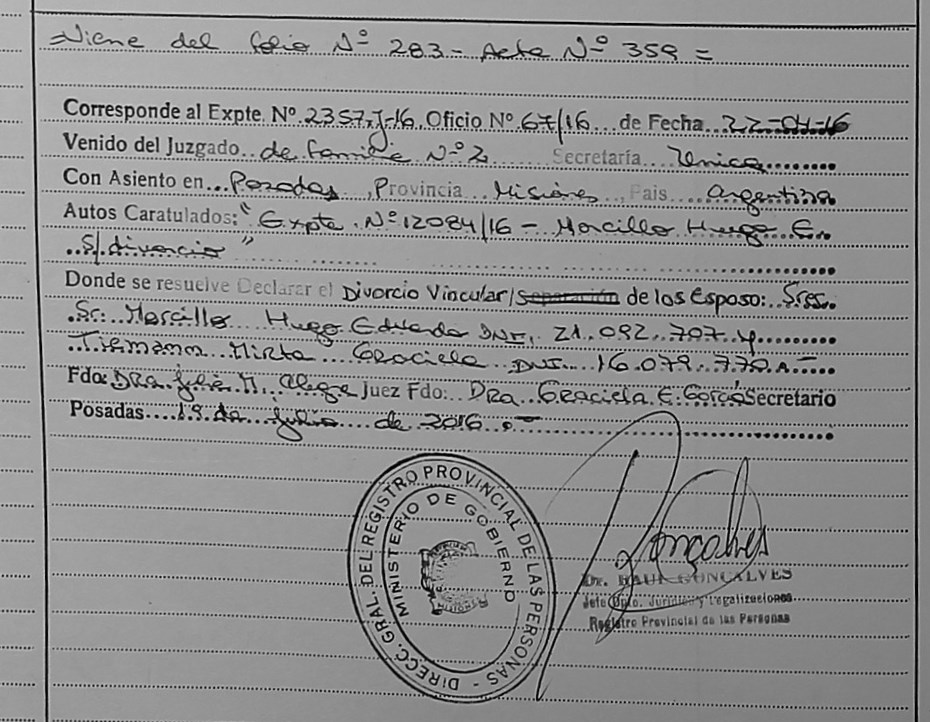 =Viene del folio Nº 283= Acta Nº 359=
Corresponde al Expte. Nº 2357-J-16. Oficio Nº 67/16 de Fecha 22-04-16
Venido del Juzgado de familia Nº 2 Secretaría Unica
Con Asiento en Posadas, Provincia Misiones, Pais Argentina
Autos Caratulados: "Expte. Nº 12084/16 - Morcillo Hugo E.
S/divorcio"
Donde se resuelve Declarar el Divorcio Vincular/Separación de los Esposo: Sres.
Sr. Morcillo Hugo Eduardo DNI. 21.092.707 y
Mirta Graciela DNI. 16.079.770.-
Fdo: DRA. Julia M. Alegre Juez Fdo: DRA. Graciela E. Secretario
Posadas 19 de Julio de 2016.-
DIRECC. GRAL. DEL REGISTRO PROVINCIAL DE LAS PERSONAS -
MINISTERIO DE GOBIERNO
Gonçalves
Dr. RAUL GONCALVES
Jefe Dpto. Jurídico y Legalizaciones
Registro Provincial de las Personas